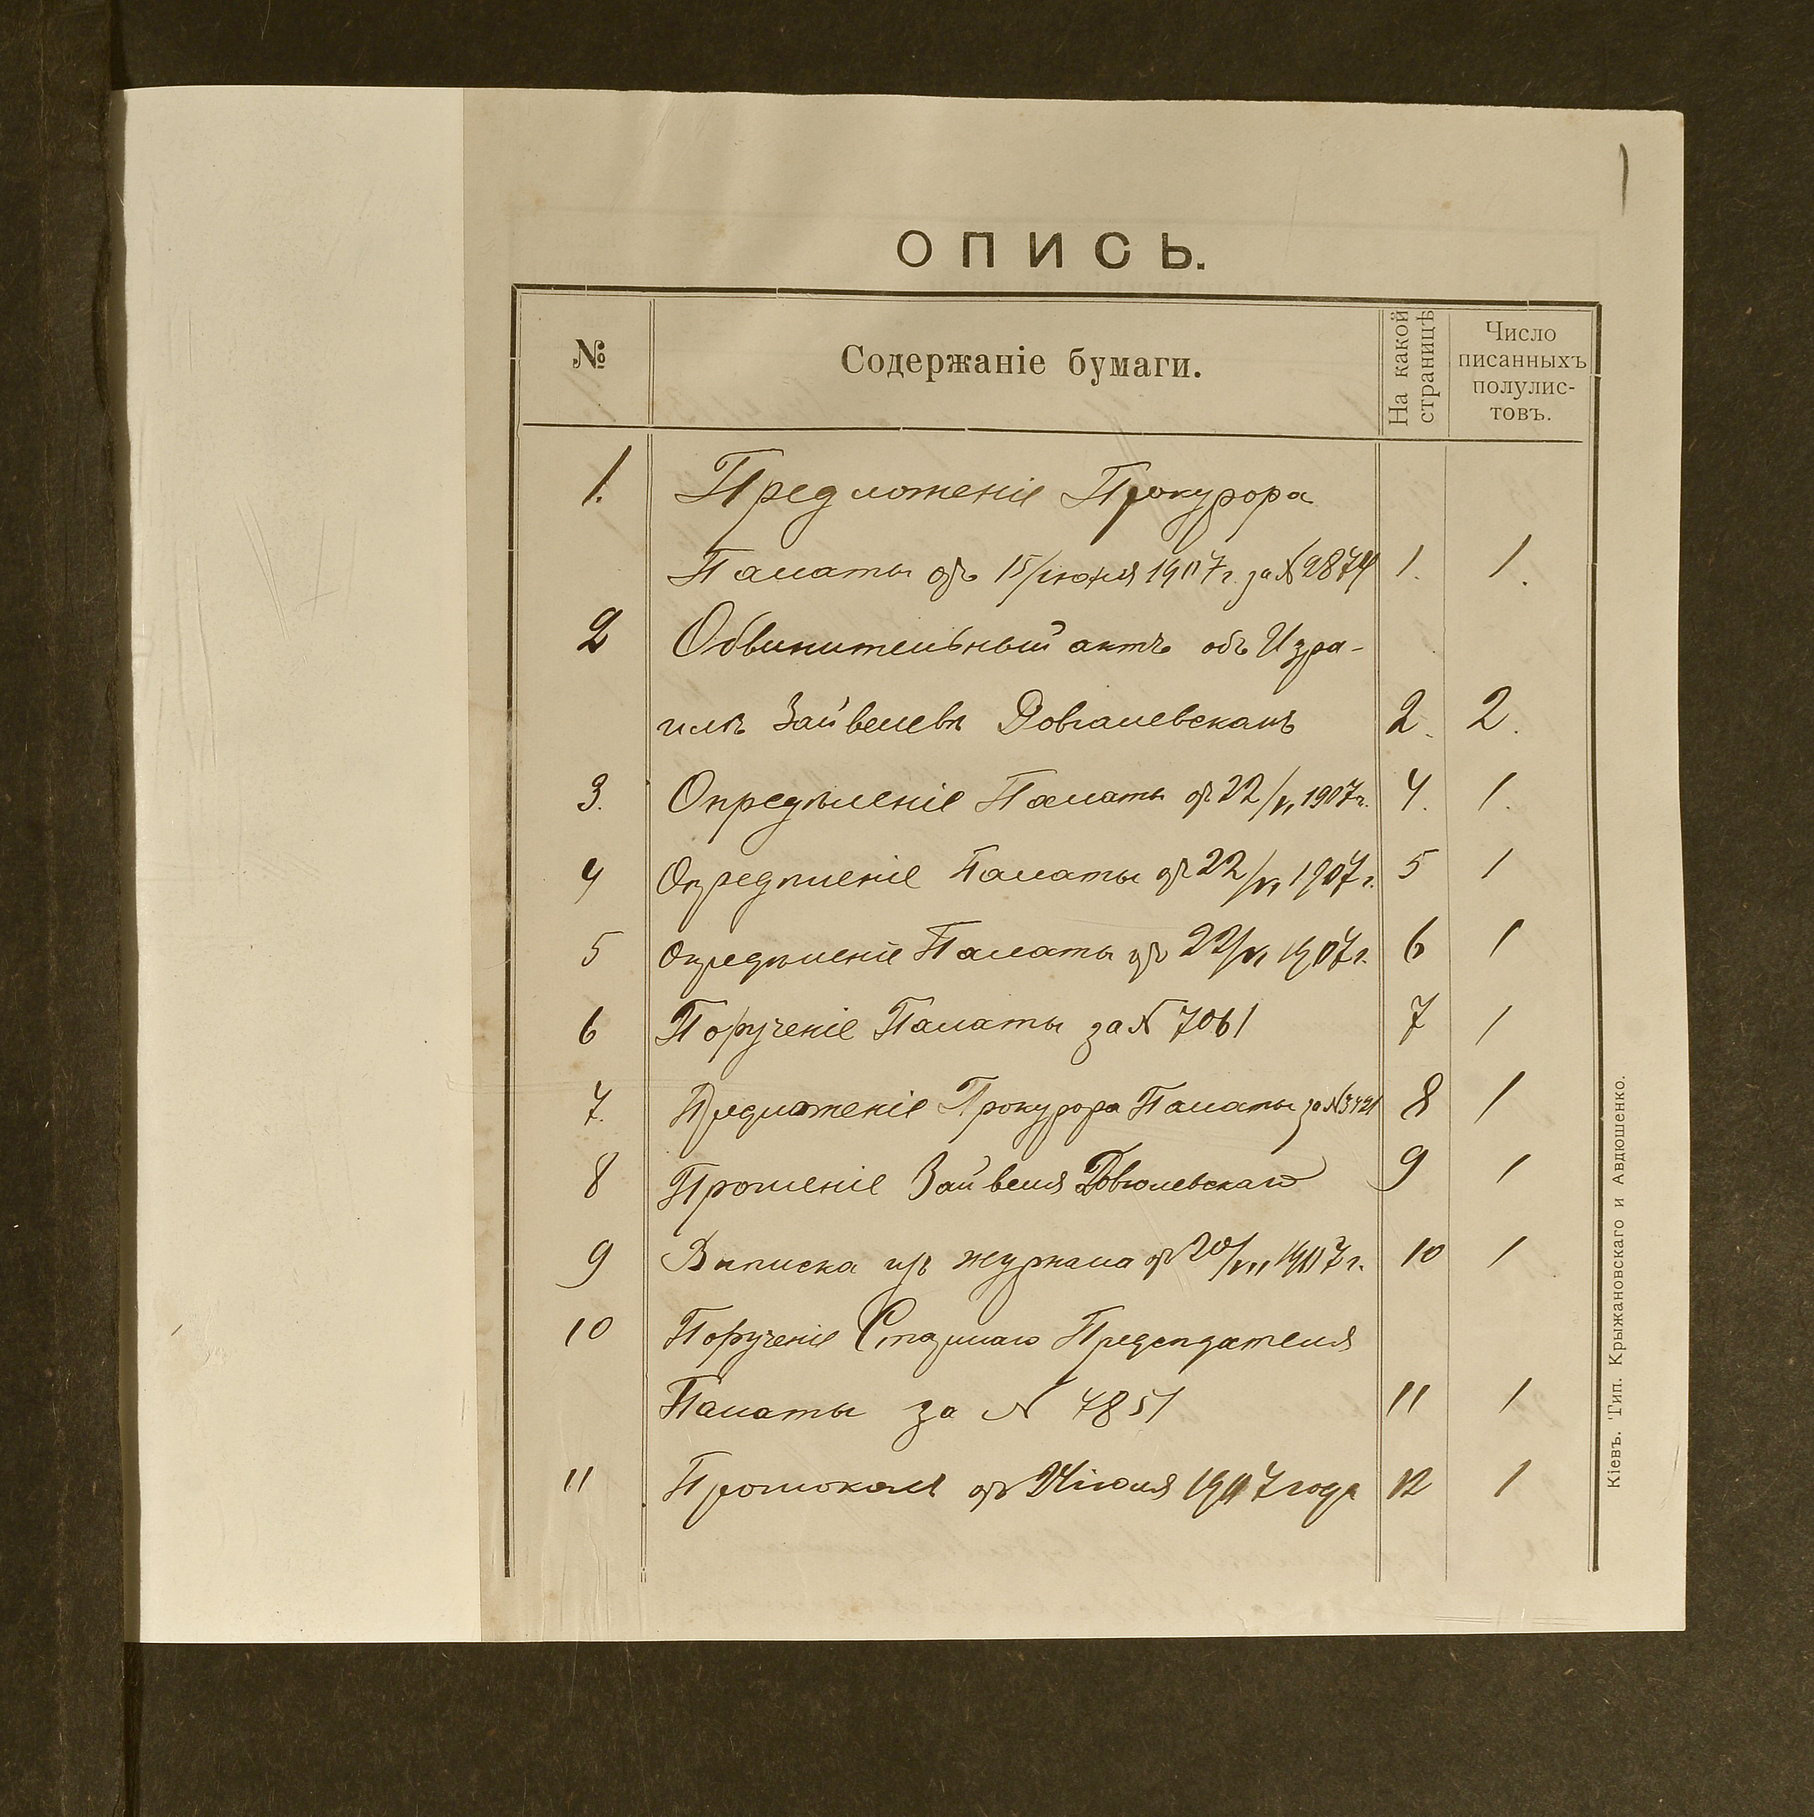 1
ОПИСЬ.
№ Содержаніе бумаги. На какой страницѣ Число писанныхъ полулис-товъ.
1. Предложеніе Прокурора
Палаты отъ 15/іюня 1907 г. за № 2874 1. 1.
2 Обвинительный актъ объ Изра-
илѣ Зайвелевѣ Довгалевскомъ 2. 2.
3. Опредѣленіе Палаты отъ 22/VI 1907 г. 4. 1.
4 Опредѣленіе Палаты отъ 22/VI 1907 г. 5 1
5 Опредѣленіе Палаты отъ 22/VI 1907 г. 6 1
6 Порученіе Палаты за № 7061 7 1
7. Предложеніе Прокурора Палаты за № 3421 8 1
8 Прошеніе Зайвеля Довгалевскаго 9 1
9 Выписка изъ журнала отъ 20/VII 1907 г. 10 1
10 Порученіе Старшаго Предсѣдателя
Палаты за № 7851 11 1
11 Протоколъ отъ 24 іюля 1907 года 12 1
Кіевъ. Тип. Крыжановскаго и Авдюшенко.